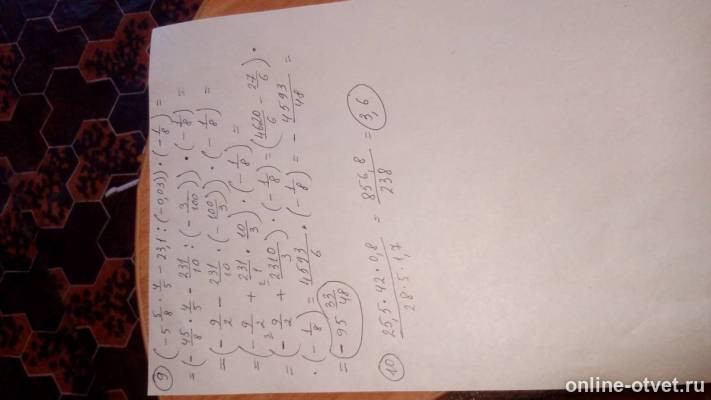 9) (-5 5/8 · 4/5 - 23,1 : (-0,03)) · (-1/8) =
= (-45/8 · 4/5 - 231/10 : (-3/100)) · (-1/8) =
= (-9/2 - 231/10 · (-100/3)) · (-1/8) =
= (-9/2 + 231/1 · 10/3) · (-1/8) =
= (-9/2 + 2310/3) · (-1/8) = (4620/6 - 27/6) ·
· (-1/8) = 4593/6 · (-1/8) = - 4593/48 =
= -95 33/48
10) 25,5 · 42 · 0,8 / 28 · 5 · 1,7 = 856,8/238 = 3,6
online-otvet.ru